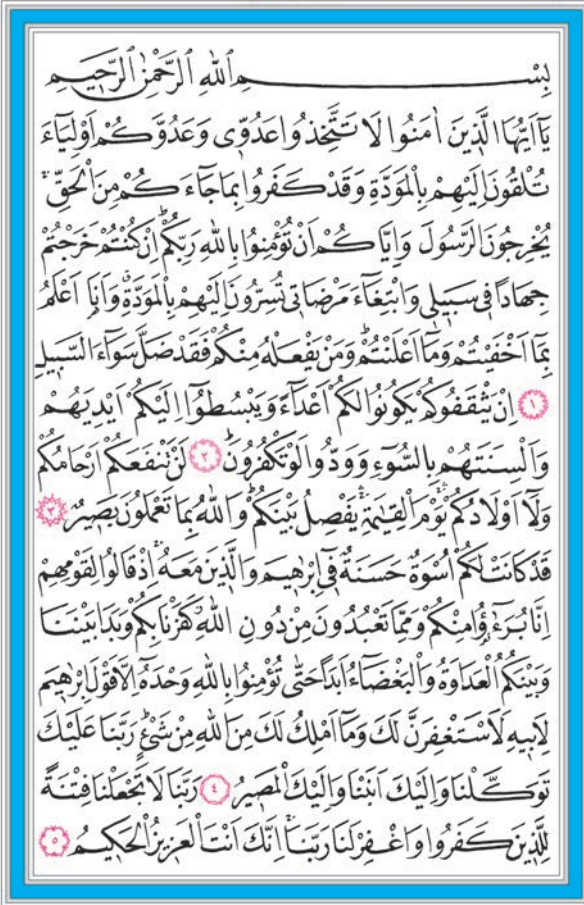 بِسْمِ اللّٰهِ الرَّحْمٰنِ الرَّحٖيمِ
يَٓا اَيُّهَا الَّذٖينَ اٰمَنُوا لَا تَتَّخِذُوا عَدُوّٖى وَعَدُوَّكُمْ اَوْلِيَٓاءَ
تُلْقُونَ اِلَيْهِمْ بِالْمَوَدَّةِ وَقَدْ كَفَرُوا بِمَا جَٓاءَكُمْ مِنَ الْحَقِّۚ
يُخْرِجُونَ الرَّسُولَ وَاِيَّاكُمْ اَنْ تُؤْمِنُوا بِاللّٰهِ رَبِّكُمْؕ اِنْ كُنْتُمْ خَرَجْتُمْ
جِهَادًا فٖى سَبٖيلٖى وَابْتِغَٓاءَ مَرْضَاتٖى تُسِرُّونَ اِلَيْهِمْ بِالْمَوَدَّةِۗ وَاَنَا۬ اَعْلَمُ
بِمَٓا اَخْفَيْتُمْ وَمَٓا اَعْلَنْتُمْؕ وَمَنْ يَفْعَلْهُ مِنْكُمْ فَقَدْ ضَلَّ سَوَٓاءَ السَّبٖيلِ
﴿١﴾ اِنْ يَثْقَفُوكُمْ يَكُونُوا لَكُمْ اَعْدَٓاءً وَيَبْسُطُٓوا اِلَيْكُمْ اَيْدِيَهُمْ
وَاَلْسِنَتَهُمْ بِالسُّٓوءِ وَوَدُّوا لَوْ تَكْفُرُونَؕ ﴿٢﴾ لَنْ تَنْفَعَكُمْ اَرْحَامُكُمْ
وَلَٓا اَوْلَادُكُمْۚ يَوْمَ الْقِيٰمَةِۚ يَفْصِلُ بَيْنَكُمْؕ وَاللّٰهُ بِمَا تَعْمَلُونَ بَصٖيرٌ ﴿٣﴾
قَدْ كَانَتْ لَكُمْ اُسْوَةٌ حَسَنَةٌ فٖٓى اِبْرٰهٖيمَ وَالَّذٖينَ مَعَهُۚ اِذْ قَالُوا لِقَوْمِهِمْ
اِنَّا بُرَءٰٓؤُ۬ا مِنْكُمْ وَمِمَّا تَعْبُدُونَ مِنْ دُونِ اللّٰهِؗ كَفَرْنَا بِكُمْ وَبَدَا بَيْنَنَا
وَبَيْنَكُمُ الْعَدَاوَةُ وَالْبَغْضَٓاءُ اَبَدًا حَتّٰى تُؤْمِنُوا بِاللّٰهِ وَحْدَهُٓ اِلَّا قَوْلَ اِبْرٰهٖيمَ
لِاَبٖيهِ لَاَسْتَغْفِرَنَّ لَكَ وَمَٓا اَمْلِكُ لَكَ مِنَ اللّٰهِ مِنْ شَیْءٍؕ رَبَّنَا عَلَيْكَ
تَوَكَّلْنَا وَاِلَيْكَ اَنَبْنَا وَاِلَيْكَ الْمَصٖيرُ ﴿٤﴾ رَبَّنَا لَا تَجْعَلْنَا فِتْنَةً
لِلَّذٖينَ كَفَرُوا وَاغْفِرْ لَنَا رَبَّنَاۚ اِنَّكَ اَنْتَ الْعَزٖيزُ الْحَكٖيمُ ﴿٥﴾